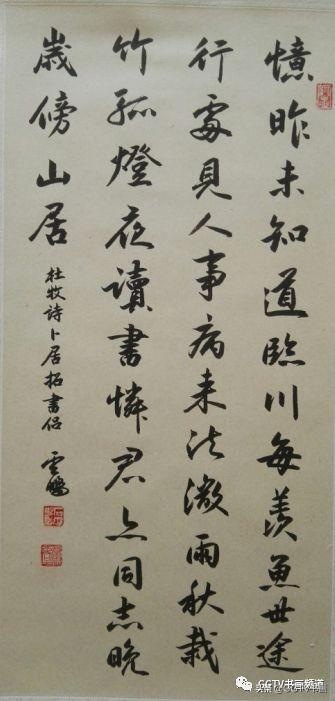 憶昨未知道臨川每羨魚世途
行處見人事病来疏微雨秋栽
竹孤燈夜讀書憐君亦同志晚
歲傍山居
杜牧詩卜居招書侶
CCTV书画频道